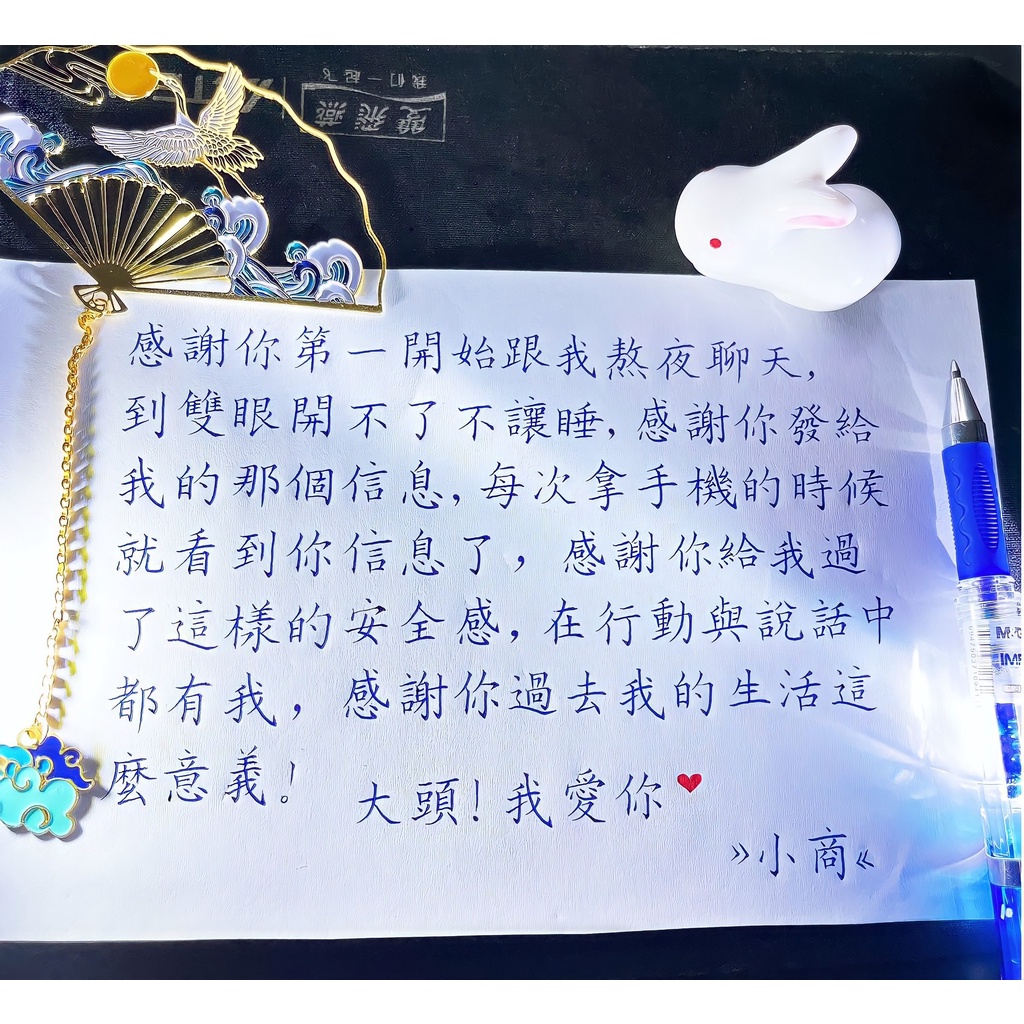 我们一起飞
雙飛燕
感謝你第一開始跟我熬夜聊天,
到雙眼開不了不讓睡,感謝你發給
我的那個信息,每次拿手機的時候
就看到你信息了,感謝你給我過
了這樣的安全感,在行動與說話中
都有我,感謝你過去我的生活這
麼意義!
大頭!我愛你
》小商《